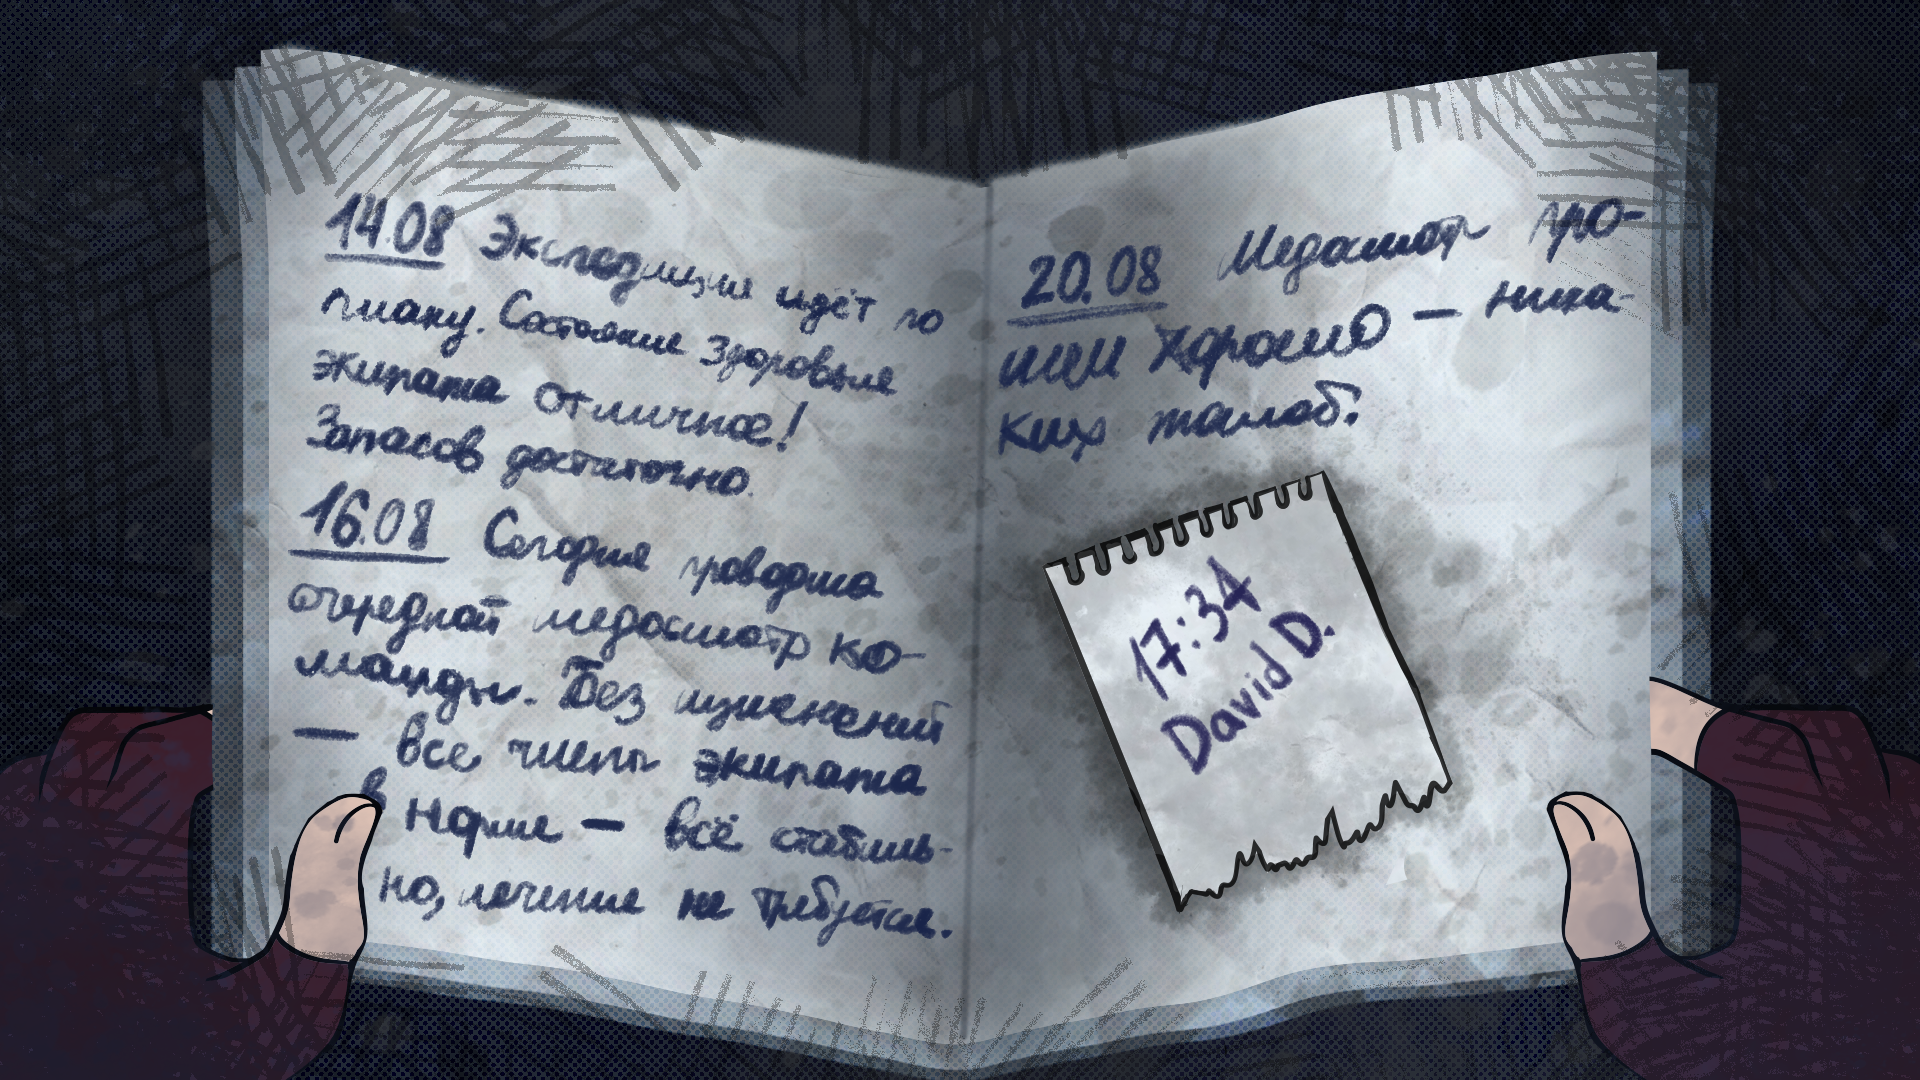 14.08 Экспедиция идёт по
плану. Состояние здоровья
экипажа отличное!
Запасов достаточно.
16.08 Сегодня проводила
очередной медосмотр ко-
манды. Без изменений
— все члены экипажа
в норме — всё стабиль-
но, лечение не требуется.
20.08 Медосмотр про-
шли хорошо — ника-
ких жалоб.
17:34
David D.